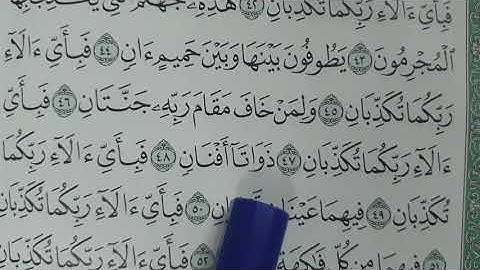 فَبِأَيِّ ءَالَآءِ رَبِّكُمَا تُكَذِّبَانِ ٤٢ هَٰذِهِۦ جَهَنَّمُ
ٱلْمُجْرِمُونَ ٤٣ يَطُوفُونَ بَيْنَهَا وَبَيْنَ حَمِيمٍ ءَانٍ ٤٤ فَبِأَيِّ ءَالَآءِ
رَبِّكُمَا تُكَذِّبَانِ ٤٥ وَلِمَنْ خَافَ مَقَامَ رَبِّهِۦ جَنَّتَانِ ٤٦ فَبِأَيِّ
ءَالَآءِ رَبِّكُمَا تُكَذِّبَانِ ٤٧ ذَوَاتَآ أَفْنَانٍ ٤٨ فَبِأَيِّ ءَالَآءِ رَبِّكُمَا
تُكَذِّبَانِ ٤٩ فِيهِمَا عَيْنَانِ ٥٠ فَبِأَيِّ ءَالَآءِ رَبِّكُمَا تُكَذِّبَانِ
٥١ فِيهِمَا مِن كُلِّ فَٰكِهَةٍ ٥٢ فَبِأَيِّ ءَالَآءِ رَبِّكُمَا تُكَذِّبَانِ